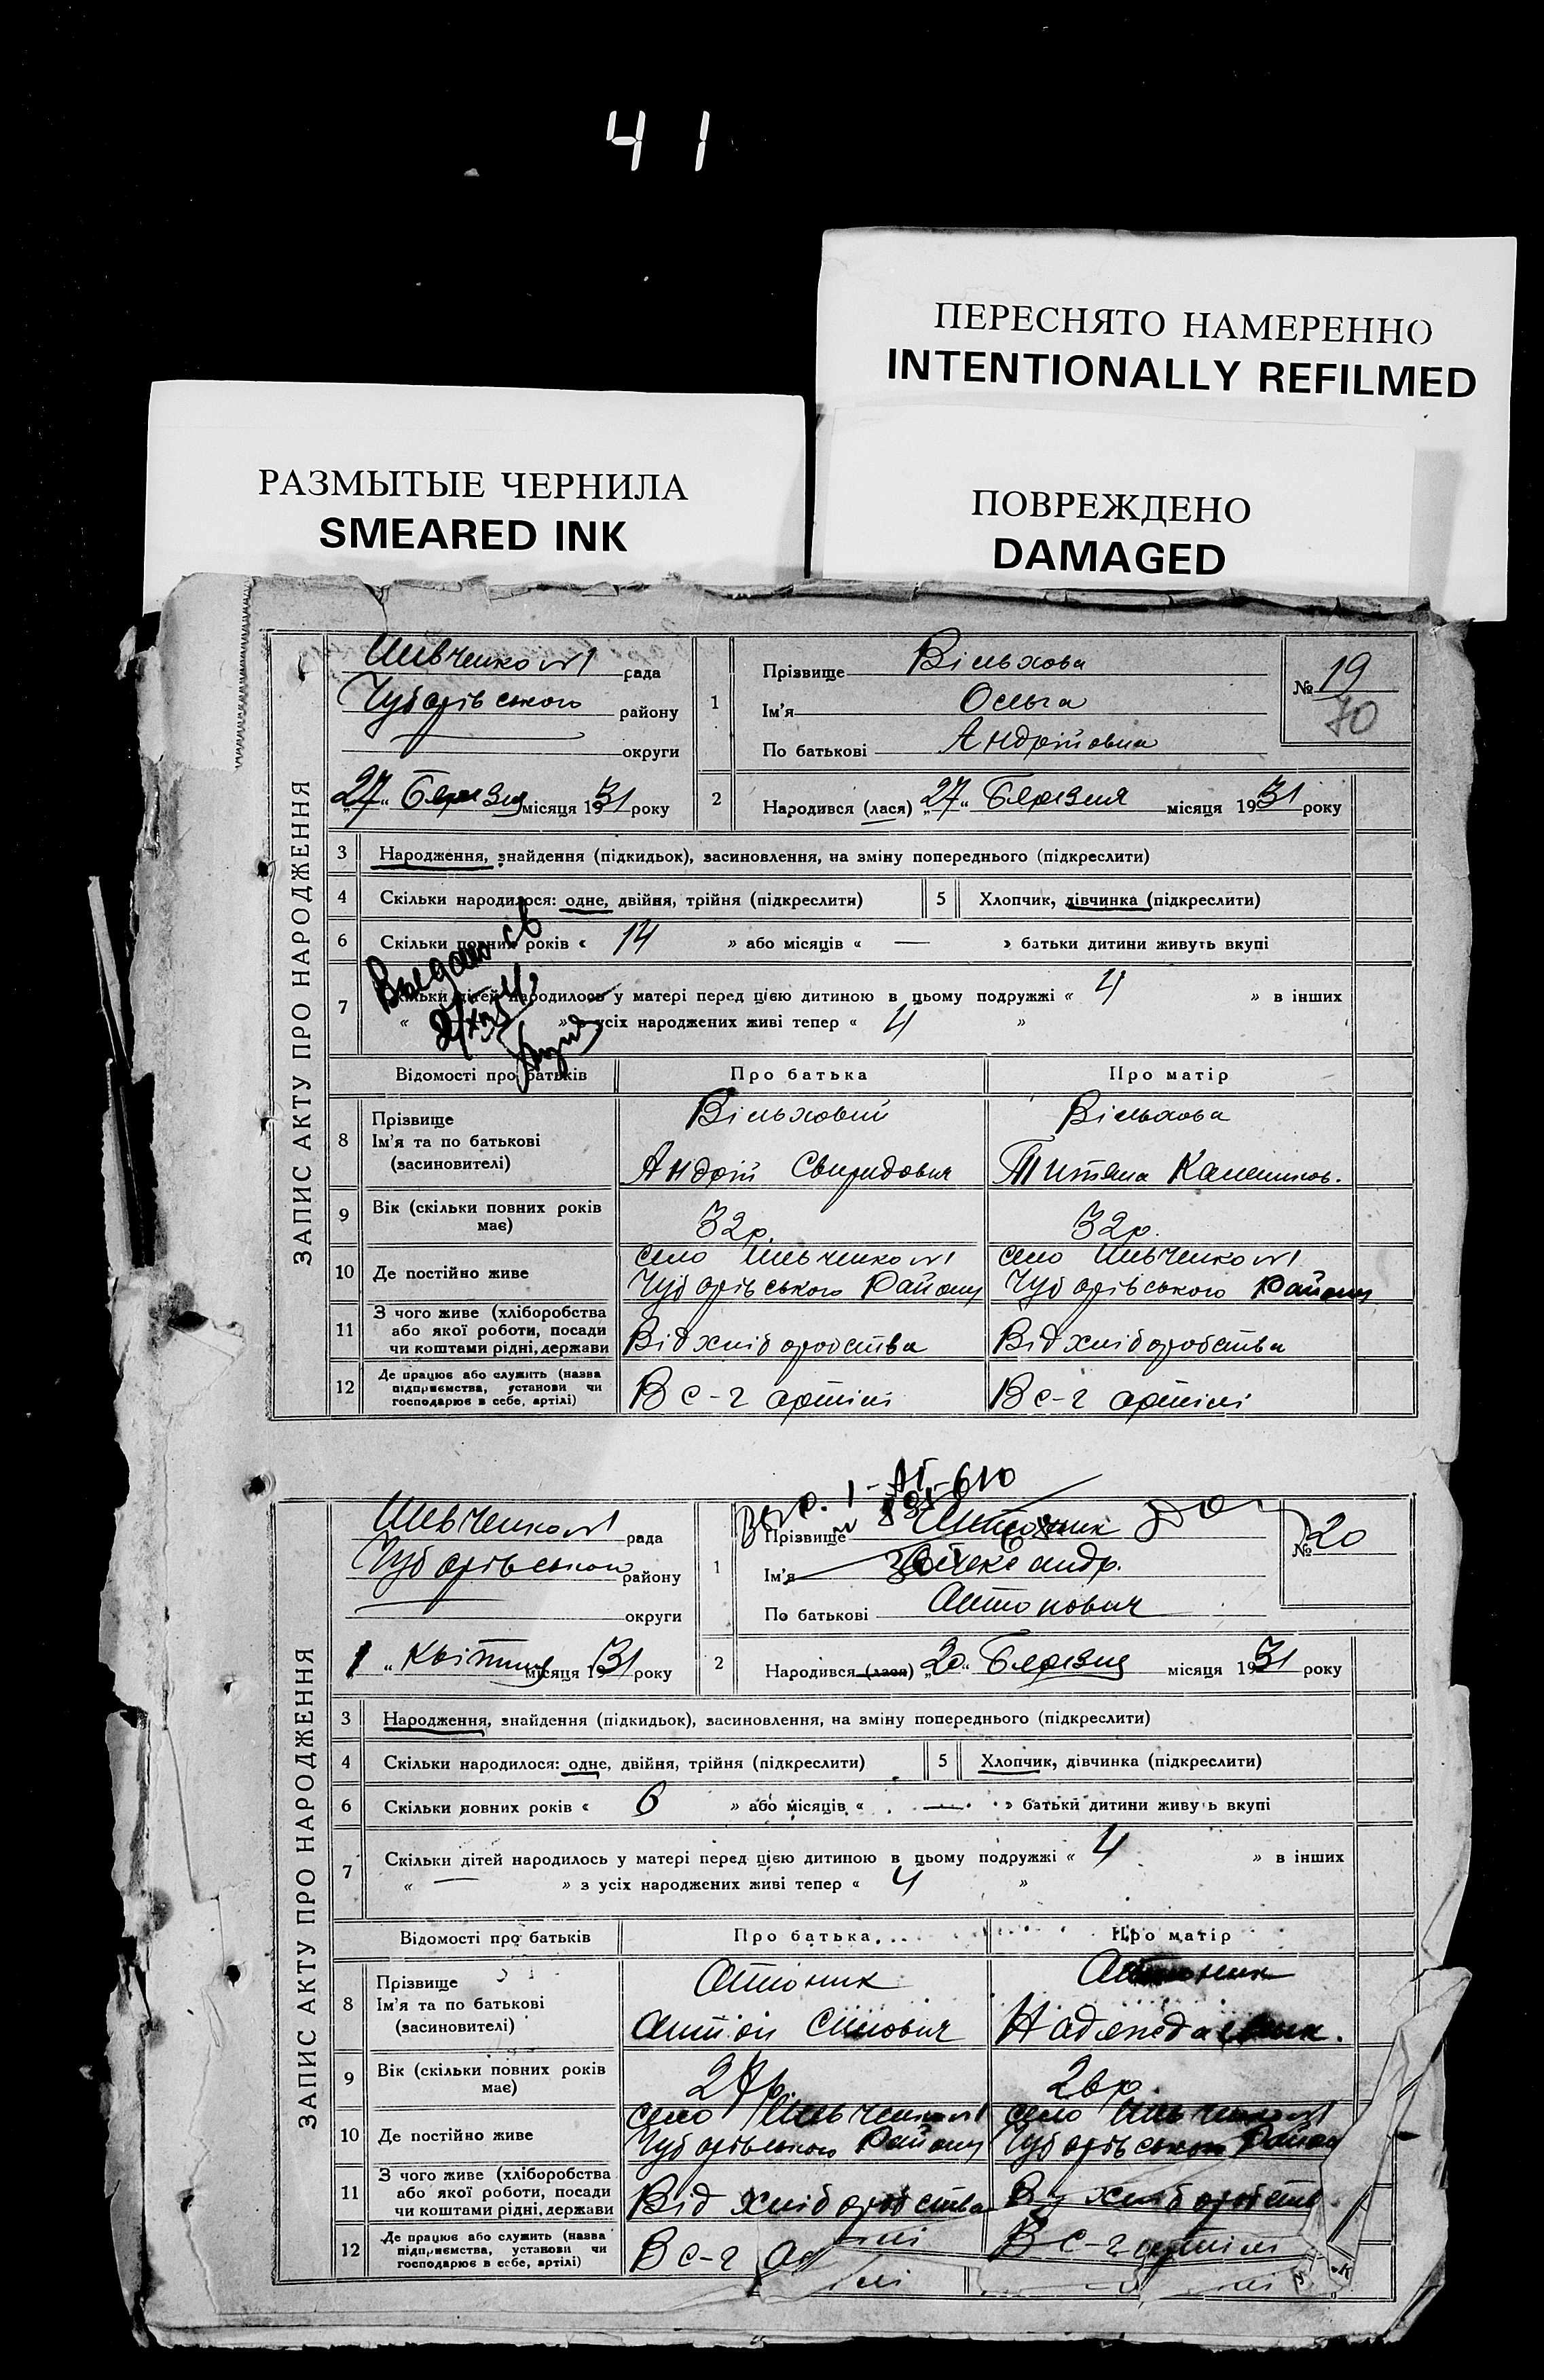 41
ПЕРЕСНЯТО НАМЕРЕННО
INTENTIONALLY REFILMED
РАЗМЫТЫЕ ЧЕРНИЛА
SMEARED INK
ПОВРЕЖДЕНО
DAMAGED
ЗАПИС АКТУ ПРО НАРОДЖЕННЯ
Шевченко №1 рада
Чубарівського району
округи
„27“ Березня місяця 1931 року
1 Прізвище Вільхова
Ім'я Ольга
По батькові Андрійовна
№ 19
70
2 Народився (лася) „27“ Березня місяця 1931 року
3 Народження, знайдення (підкидьок), засиновлення, на зміну попереднього (підкреслити)
4 Скільки народилося: одне, двійня, трійня (підкреслити) 5 Хлопчик, дівчинка (підкреслити)
6 Скільки повних років « 14 » або місяців « — » батьки дитини живуть вкупі
7 Скільки дітей народилось у матері перед цією дитиною в цьому подружжі « 4 » в інших
« » з усіх народжених живі тепер « 4 »
Відомості про батьків Про батька Про матір
8 Прізвище Вільховий Вільхова
Ім'я та по батькові
(засиновителі) Андрій Свиридович
9 Вік (скільки повних років має) 32р. 32р.
10 Де постійно живе село Шевченко №1 село Шевченко №1
Чубарівського Району Чубарівського Району
11 З чого живе (хліборобства
або якої роботи, посади
чи коштами рідні, держави Від хліборобства Від хліборобства
12 Де працює або служить (назва
підприємства, установи чи
господарює в себе, артілі) В с-г артілі В с-г артілі
ЗАПИС АКТУ ПРО НАРОДЖЕННЯ
Шевченко №1 рада
Чубарівського району
округи
1 „ Квітня місяця 1931 року
1 Прізвище
Ім'я Олександр.
По батькові Антонович
№ 20
2 Народився (лася) „20“ Березня місяця 1931 року
3 Народження, знайдення (підкидьок), засиновлення, на зміну попереднього (підкреслити)
4 Скільки народилося: одне, двійня, трійня (підкреслити) 5 Хлопчик, дівчинка (підкреслити)
6 Скільки повних років « 6 » або місяців « — » батьки дитини живуть вкупі
7 Скільки дітей народилось у матері перед цією дитиною в цьому подружжі « 4 » в інших
« — » з усіх народжених живі тепер « 4 »
Відомості про батьків Про батька Про матір
8 Прізвище
Ім'я та по батькові
(засиновителі) Антон Надежда
9 Вік (скільки повних років має) 26р.
10 Де постійно живе село Шевченко №1 село Шевченко №1
Чубарівського Району Чубарівського Району
11 З чого живе (хліборобства
або якої роботи, посади
чи коштами рідні, держави Від хліборобства
12 Де працює або служить (назва
підприємства, установи чи
господарює в себе, артілі) В с-г В с-г артілі